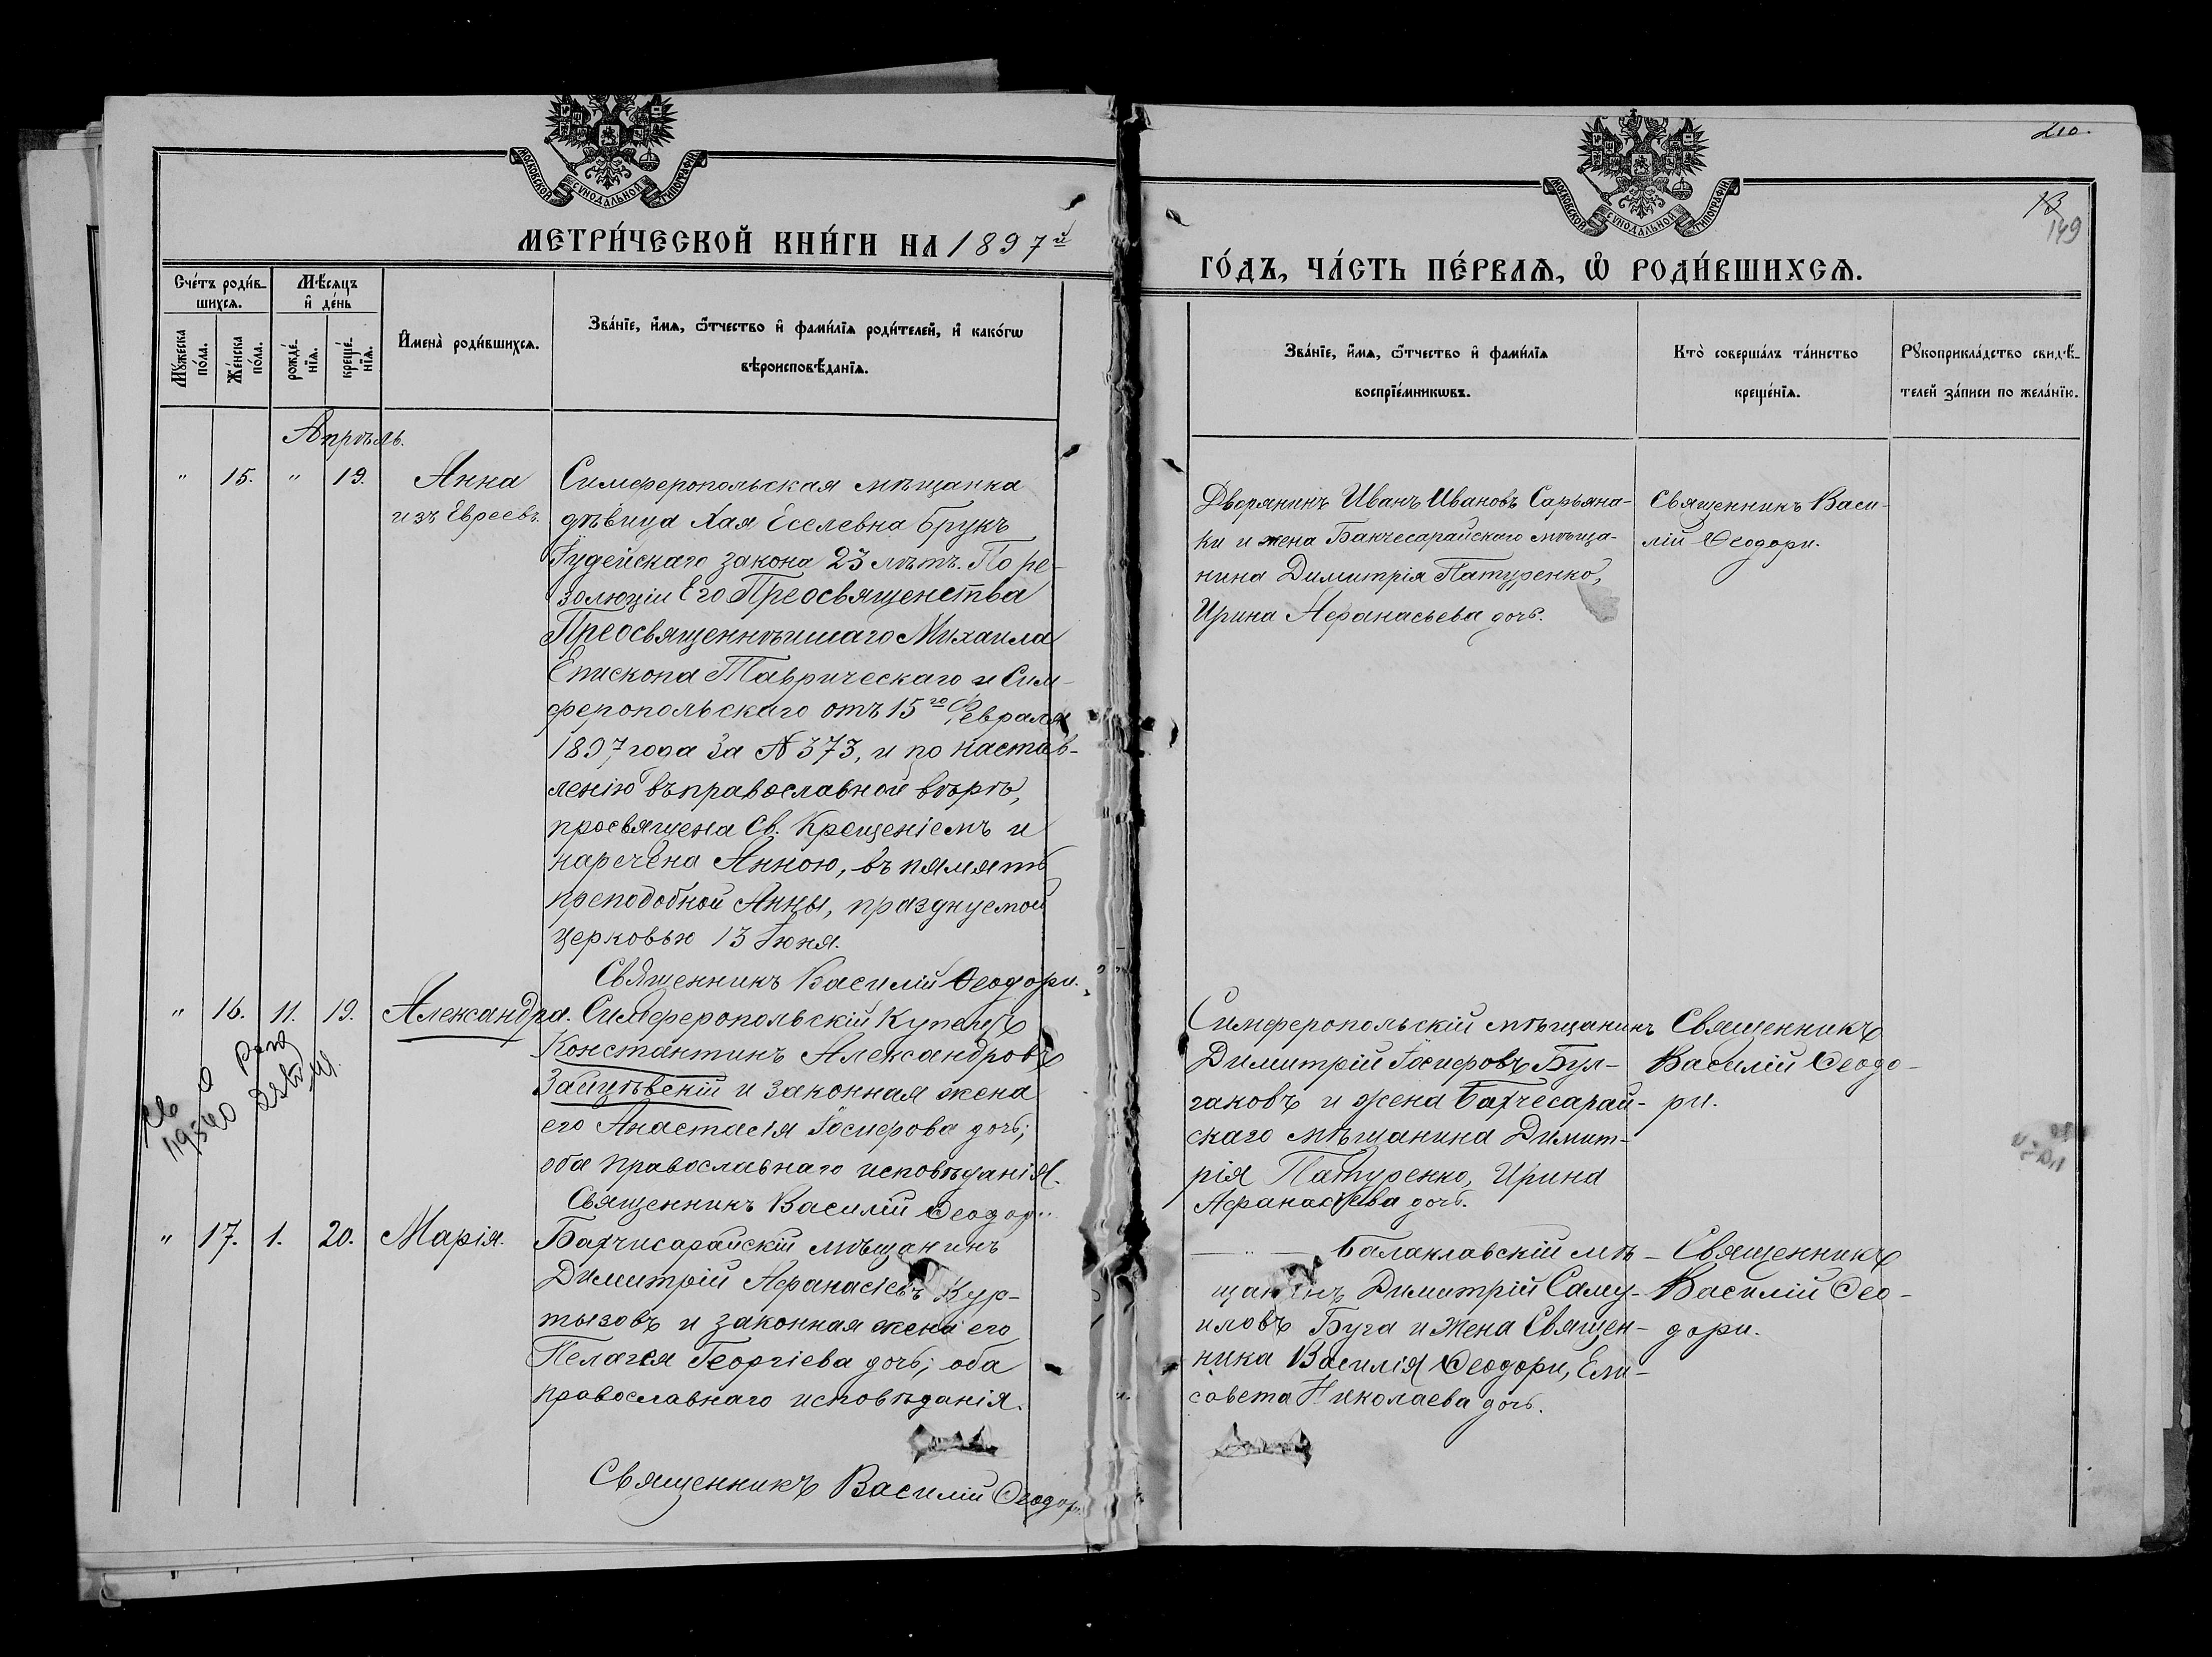 МОСКОВСКОЙ СУНОДАЛЬНОЙ ТИПОГРАФІИ
МЕТРИ́ЧЕСКОЙ КНИ́ГИ НА 1897й
Сче́тъ роди́в-
шихся.
Мѣ́сяцъ
и҆ де́нь
Мꙋ́жеска
по́ла.
Же́нска
по́ла.
рожде́-
нїѧ.
креще́-
нїѧ.
И҆мена̀ роди́вшихсѧ.
Зва́нїе, и҆́мѧ, ѻ҆́тчество и҆ фами́лїѧ роди́телей, и҆ како́гѡ
вѣроисповѣ́данїѧ.
Апрѣль.
" 15. " 19. Анна
изъ Евреевъ.
Симферопольская мѣщанка
дѣвица Хая Еселевна Брукъ
Іудейскаго закона 23 лѣтъ. По ре-
золюціи Его Преосвященства
Преосвященнѣйшаго Михаила
Епископа Таврическаго и Сим-
феропольскаго отъ 15го Февраля
1897 года за № 373, и по настав-
ленію въ православной вѣрѣ,
просвящена Св. Крещеніемъ и
наречена Анною, въ память
преподобной Анны, празднуемой
церковью 13 Іюня.
Священникъ Василій Ѳеодори.
" 16. 11. 19. Александра. Симферопольскій Купецъ
Константинъ Александровъ
Зайцѣвскій и законная жена
его Анастасія Іосифова дочь;
оба православнаго исповѣданія.
Священникъ Василій Ѳеодори.
" 17. 1. 20. Марія. Бахчисарайскій мѣщанинъ
Димитрій Афанасіевъ Кур-
тызовъ и законная жена его
Пелагея Георгіева дочь; оба
православнаго исповѣданія.
Священникъ Василій Ѳеодор.
210.
13
149
МОСКОВСКОЙ СУНОДАЛЬНОЙ ТИПОГРАФІИ
ГО́ДЪ, ЧА́СТЬ ПЕ́РВАѦ, Ѡ҆ РОДИ́ВШИХСѦ.
Зва́нїе, и҆́мѧ, ѻ҆́тчество и҆ фами́лїѧ
воспрїе́мникѡвъ.
Кто̀ соверша́лъ та́инство
креще́нїѧ.
Рꙋкоприкла́дство свидѣ́-
телей за́писи по жела́нїю.
Дворянинъ Иванъ Ивановъ Сарьяна-
ки и жена Бахчесарайскаго мѣща-
нина Димитрія Патуренко,
Ирина Афанасьева дочь.
Священникъ Васи-
лій Ѳеодори.
Симферопольскій мѣщанинъ
Димитрій Іосифовъ Бул-
гаковъ и жена Бахчесарай-
скаго мѣщанина Димит-
рія Патуренко, Ирина
Афанасьева дочь.
Священникъ
Василій Ѳеодо-
ри.
Балаклавскій мѣ-
щанинъ Димитрій Саму-
иловъ Буга и жена Священ-
ника Василія Ѳеодори, Ели-
савета Николаева дочь.
Священникъ
Василій Ѳео-
дори.